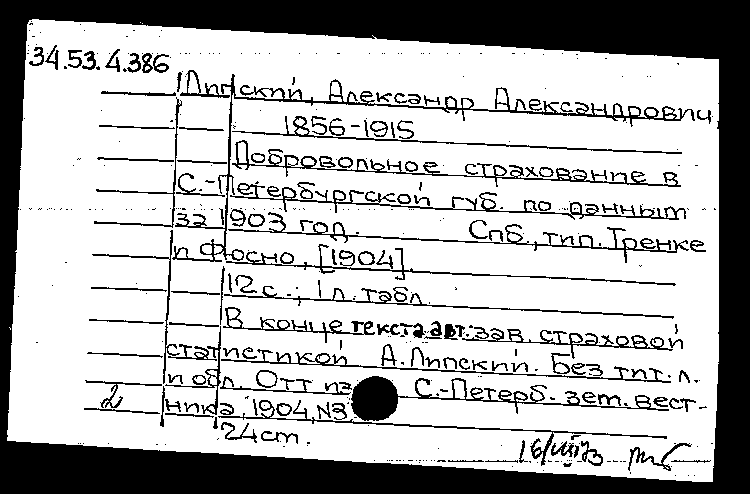 34.53.4.386
Липский, Александр Александрович,
1856-1915
Добровольное страхование в
С.-Петербургской губ. по данным
за 1903 год. Спб., тип. Тренке
и Фюсно, [1904].
12 с.; 1 л. табл.
В конце текста авт.: зав. страховой
статистикой А. Липский. Без тит. л.
и обл. Отт. из С.-Петерб. зем. вест-
ника, 1904, №3
2
24 ст.